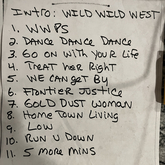 Intro: WILD WILD WEST
1. WWPS
2. DANCE DANCE DANCE
3. GO ON WITH YOUR LIFE
4. TREAT HER RIGHT
5. WE CAN GET BY
6. FRONTIER JUSTICE
7. GOLD DUST WOMAN
8. HOME TOWN LIVING
9. LOW
10. RUN U DOWN
11. 5 MORE MINS